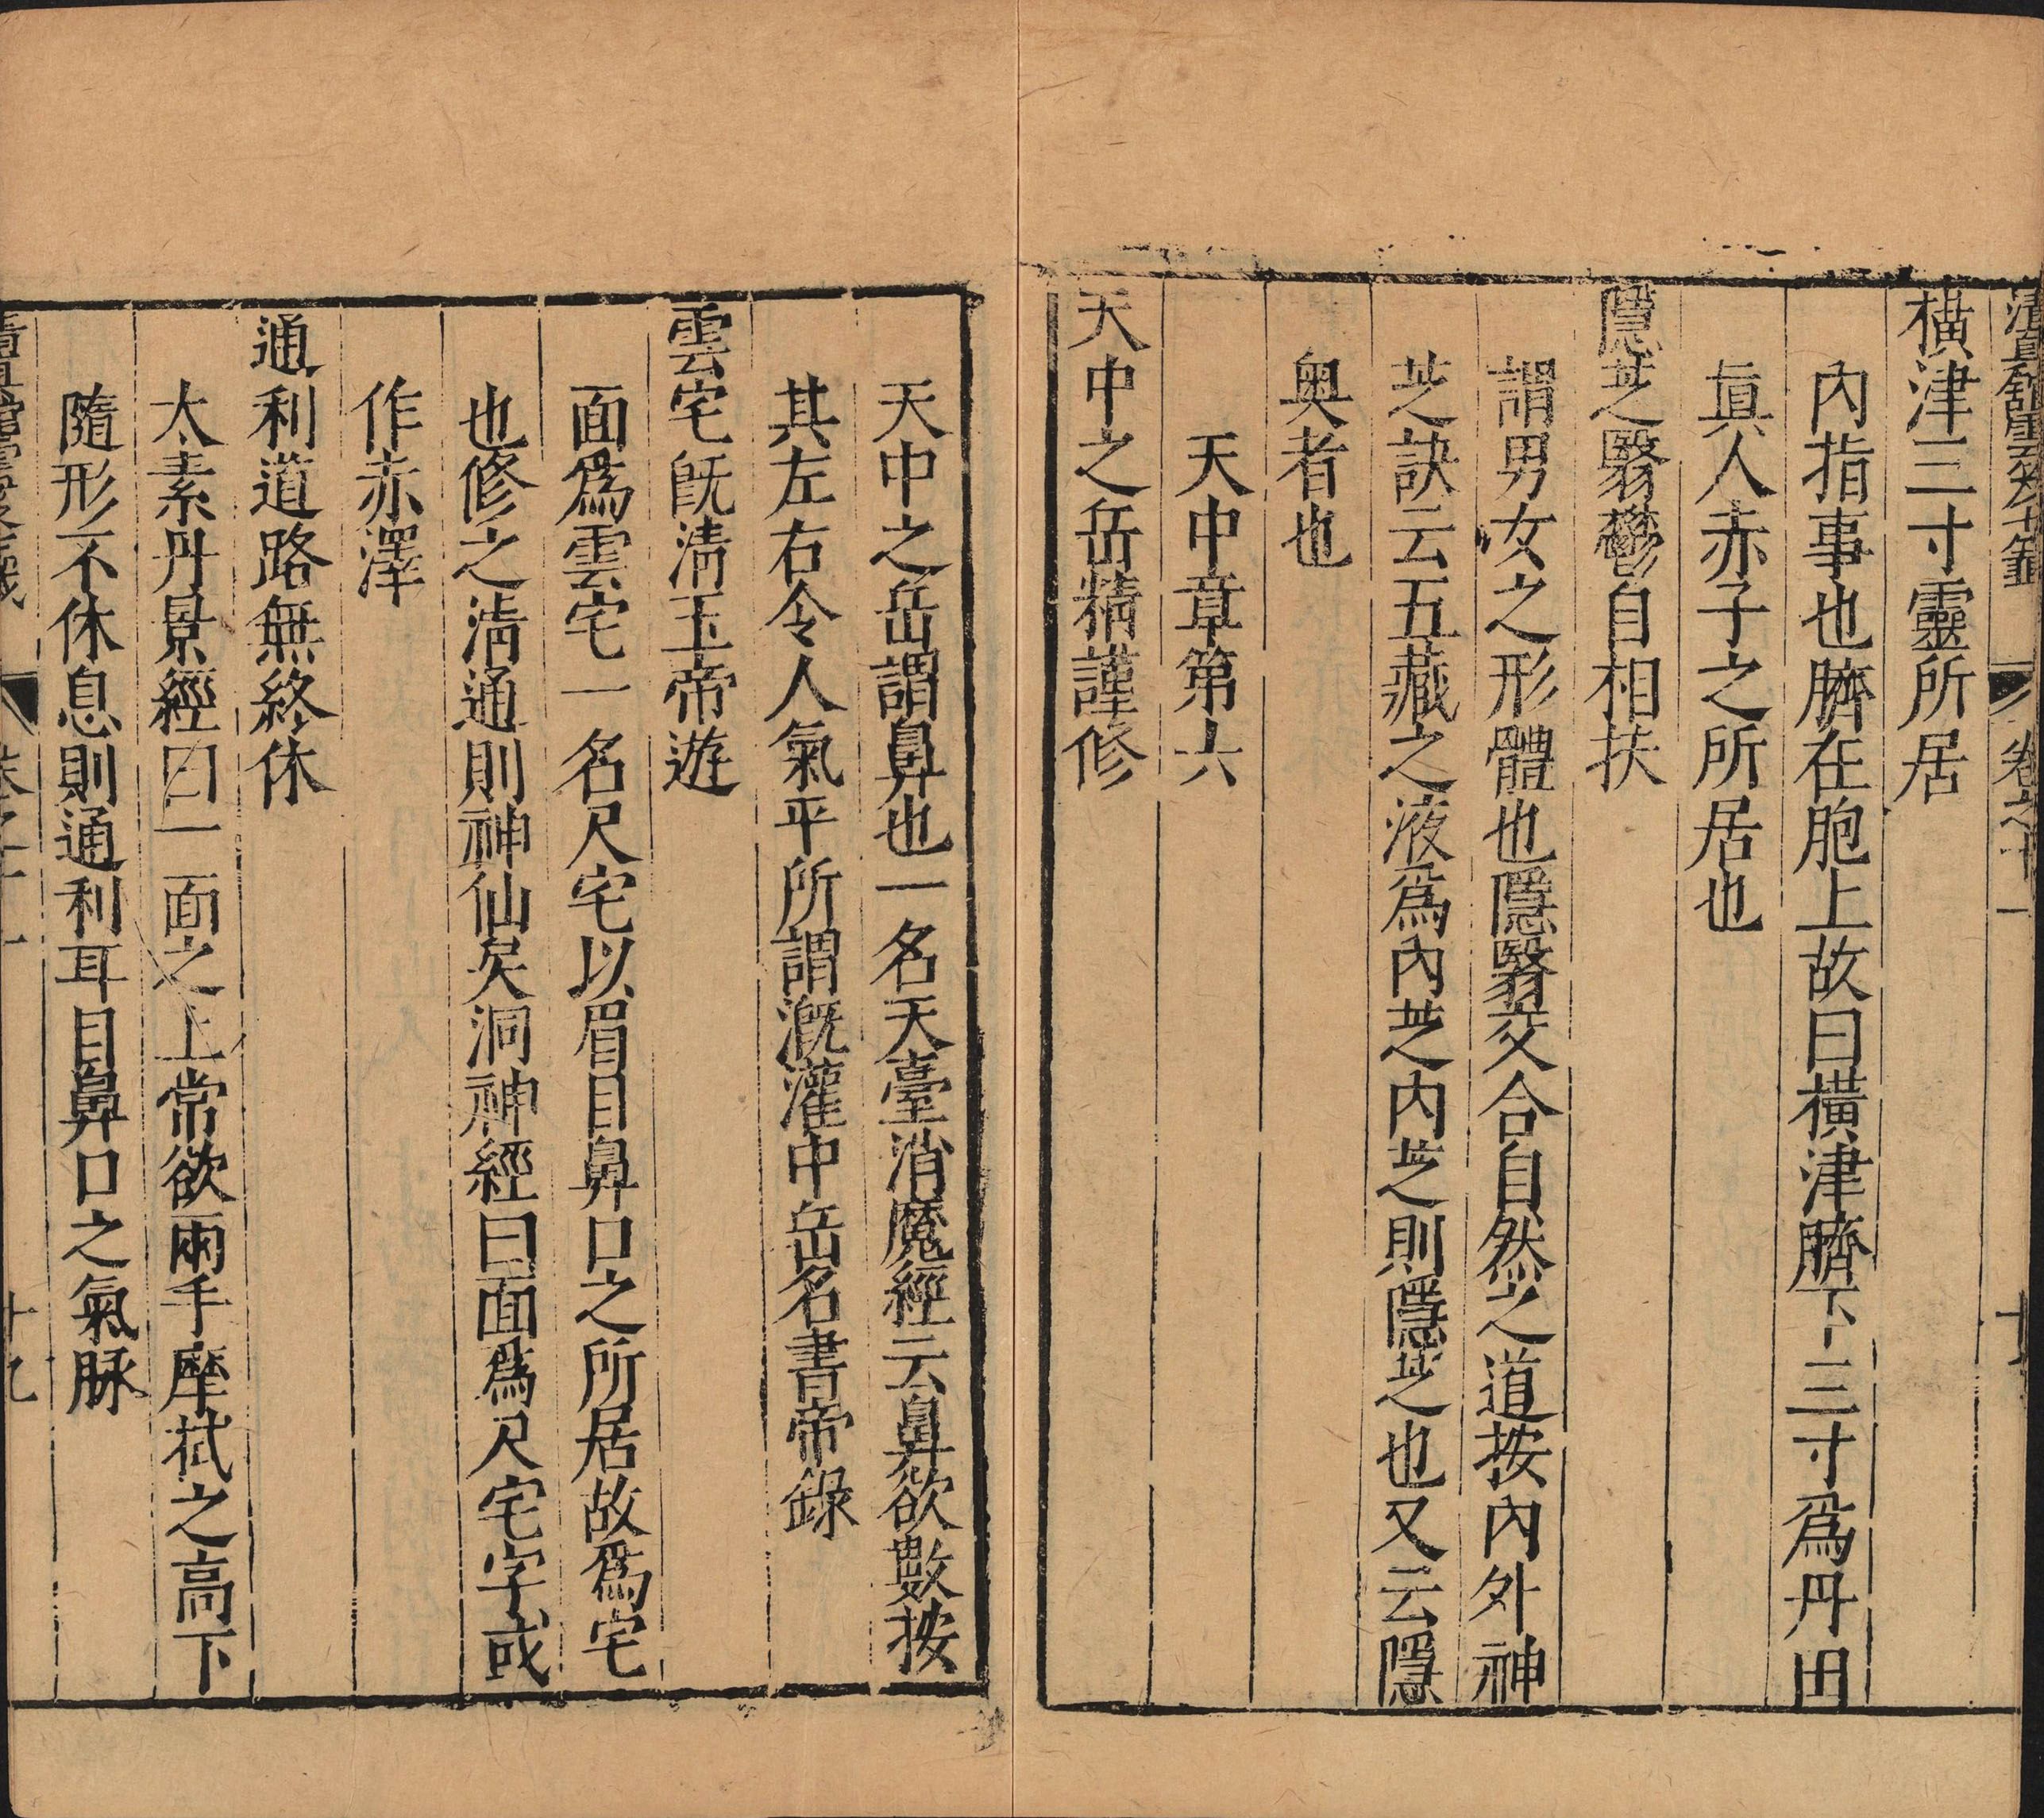 清真館雲笈七籤 卷之十一
橫津三寸靈所居
內指事也臍在胞上故曰橫津臍下三寸爲丹田
眞人赤子之所居也
隱芝翳鬱自相扶
謂男女之形體也隱翳交合自然之道按內外神
芝訣云五藏之液爲內芝內芝則隱芝也又云隱
奥者也
天中章第六
天中之岳精謹修
天中之岳謂鼻也一名天臺消魔經云鼻欲數按
其左右令人氣平所謂溉灌中岳名書帝錄
雲宅旣淸玉帝遊
面爲雲宅一名尺宅以眉目鼻口之所居故爲宅
也修之淸通則神仙矣洞神經曰面爲尺宅字或
作赤澤
通利道路無終休
太素丹景經曰一面之上常欲兩手摩拭之高下
隨形不休息則通利耳目鼻口之氣脉
卷之十一 十九